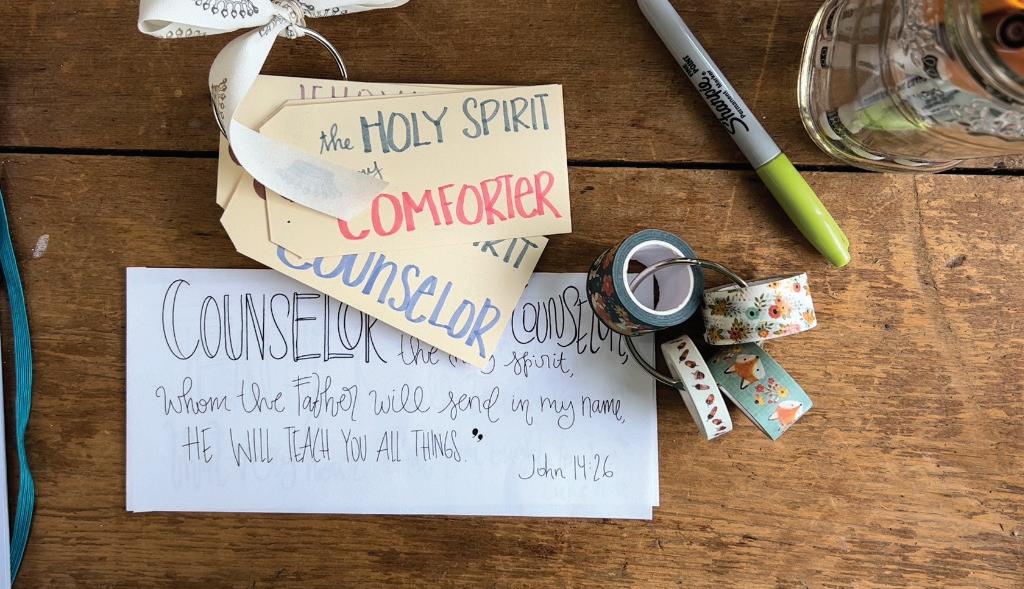 JEHOVA
the HOLY SPIRIT
my
COMFORTER
SPIRIT
COUNSELOR
COUNSELOR COUNSELOR
the spirit,
whom the Father will send in my name,
HE WILL TEACH YOU ALL THINGS."
John 14:26
Sharpie
FINE POINT
Permanent Marker